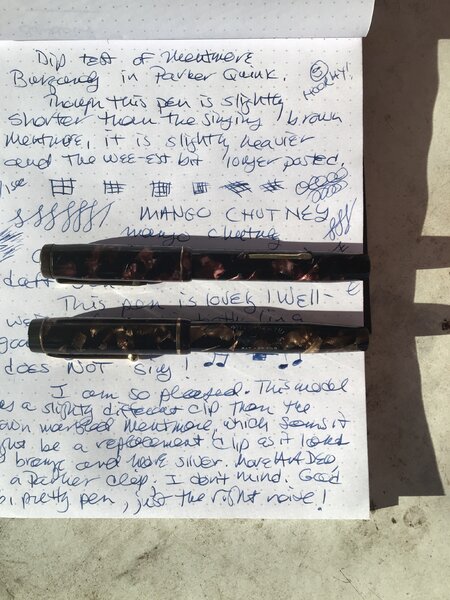 Dip test of Mentmore
Burgandy in Parker Quink.
HOORAY!
Though this pen is slightly
shorter than the singing brown
Mentmore, it is slightly heavier
and the wee-est bit longer posted.
MANGO CHUTNEY
mango chutney
daft
This pen is lovely! Well-
does NOT sing!
I am so pleased. This model
a slightly different clip than the
marbled Mentmore, which seems it
be a replacement clip as it looks
bronze and more silver. More Art Deco,
a Parker clip. I don't mind. Good
pretty pen, just the right noise!